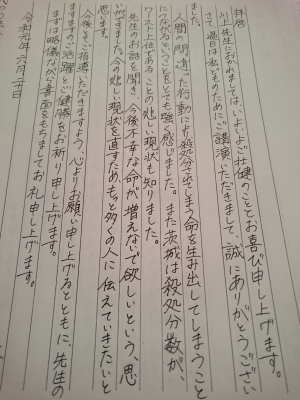 拝啓
川上先生におかれましては、いよいよご壮健のこととお喜び申し上げます。
さて、過日は私どものためにご講演いただきまして、誠にありがとうござい
ました。
人間の間違った行動により殺処分されてしまう命を生み出してしまうこと
につながるということをとても強く感じました。また茨城は殺処分数が、
ワースト上位であることの悲しい現状も知りました。
先生のお話を聞き、今後不幸な命が増えないで欲しいという、思
いがでました。今の悲しい現状を直すため、もっと多くの人に伝えていきたいと
思います。
今後もご指導いただきますよう、心よりお願い申し上げるとともに、先生の
ますますのご活躍とご健勝をお祈り申し上げます。
まずは略儀ながら書面をもちましてお礼申し上げます。
令和 年六月二十日